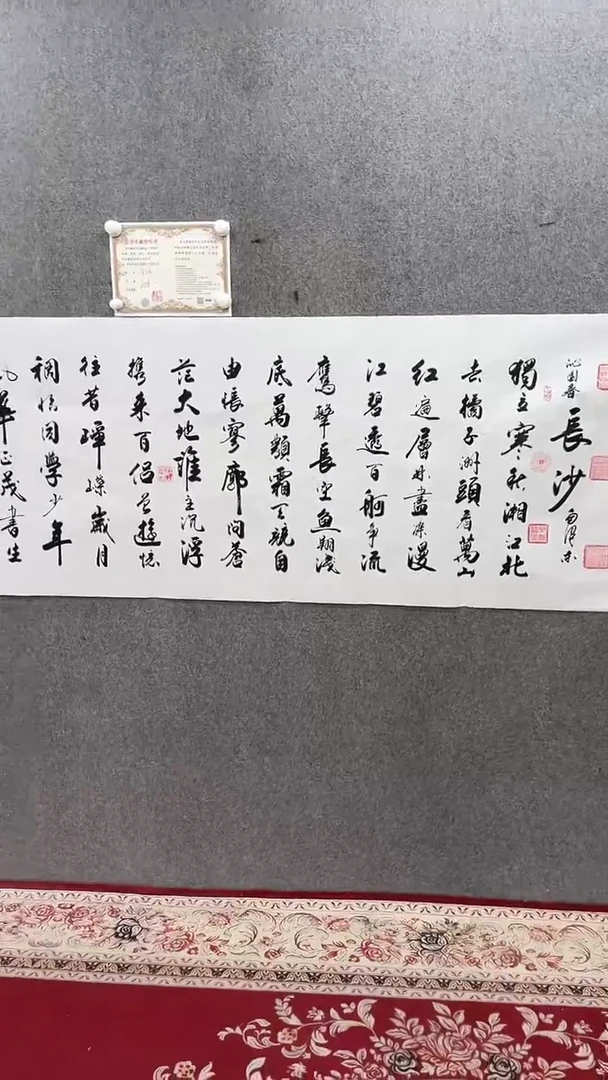 沁园春
長沙
毛泽东
獨立寒秋湘江北
去橘子洲頭看萬山
紅遍層林盡染漫
江碧透百舸争流
鹰擊長空鱼翔淺
底萬類霜天競自
由悵寥廓问蒼
茫大地誰主沉浮
携来百侣曾遊憶
往昔崢嶸歲月
稠恰同學少年
風華正茂書生